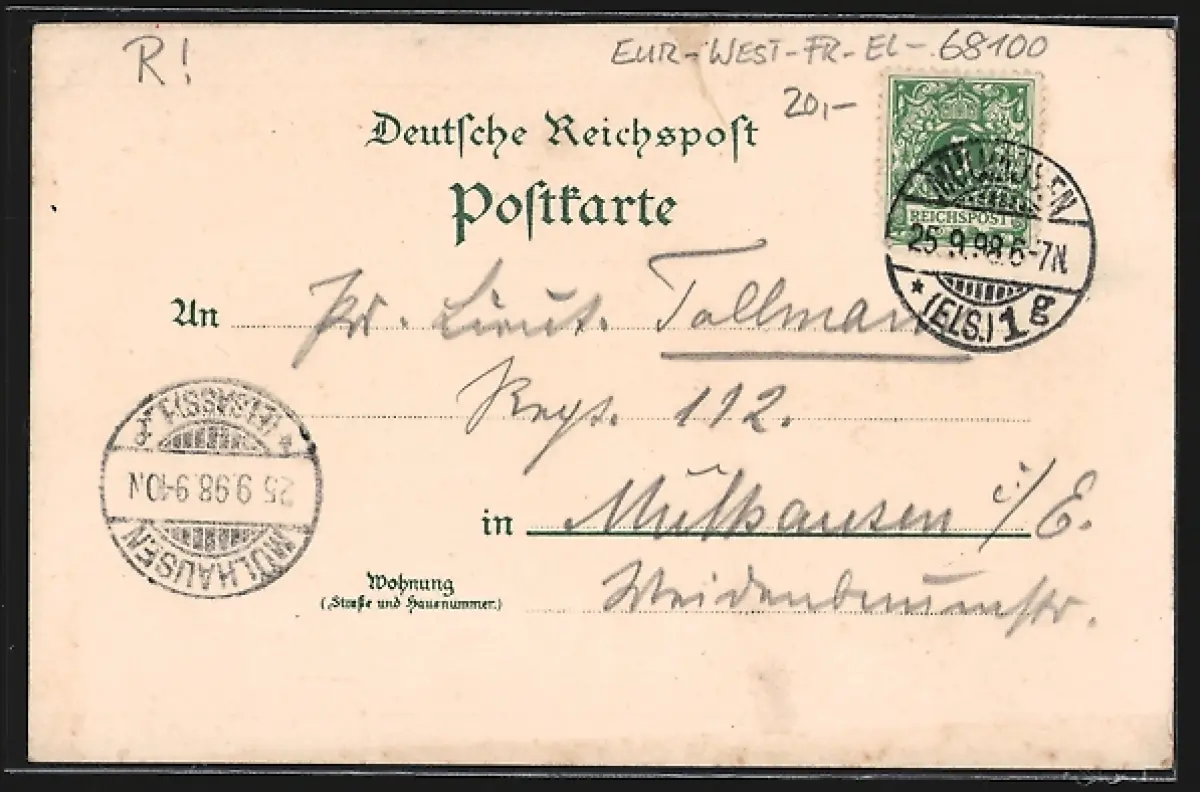 R!
EUR-WEST-FR-EL-68100
20,-
Deutsche Reichspost
Postkarte
REICHSPOST
MÜLHAUSEN
25.9.98.6-7N.
* (ELS.) 1 g
An Pr. Lieut. Tollmann
Regt. 112.
* (ELSASS) 1
25 9.98.9-10N
MÜLHAUSEN
in Mülhausen i/E.
Wohnung
(Straße und Hausnummer.)